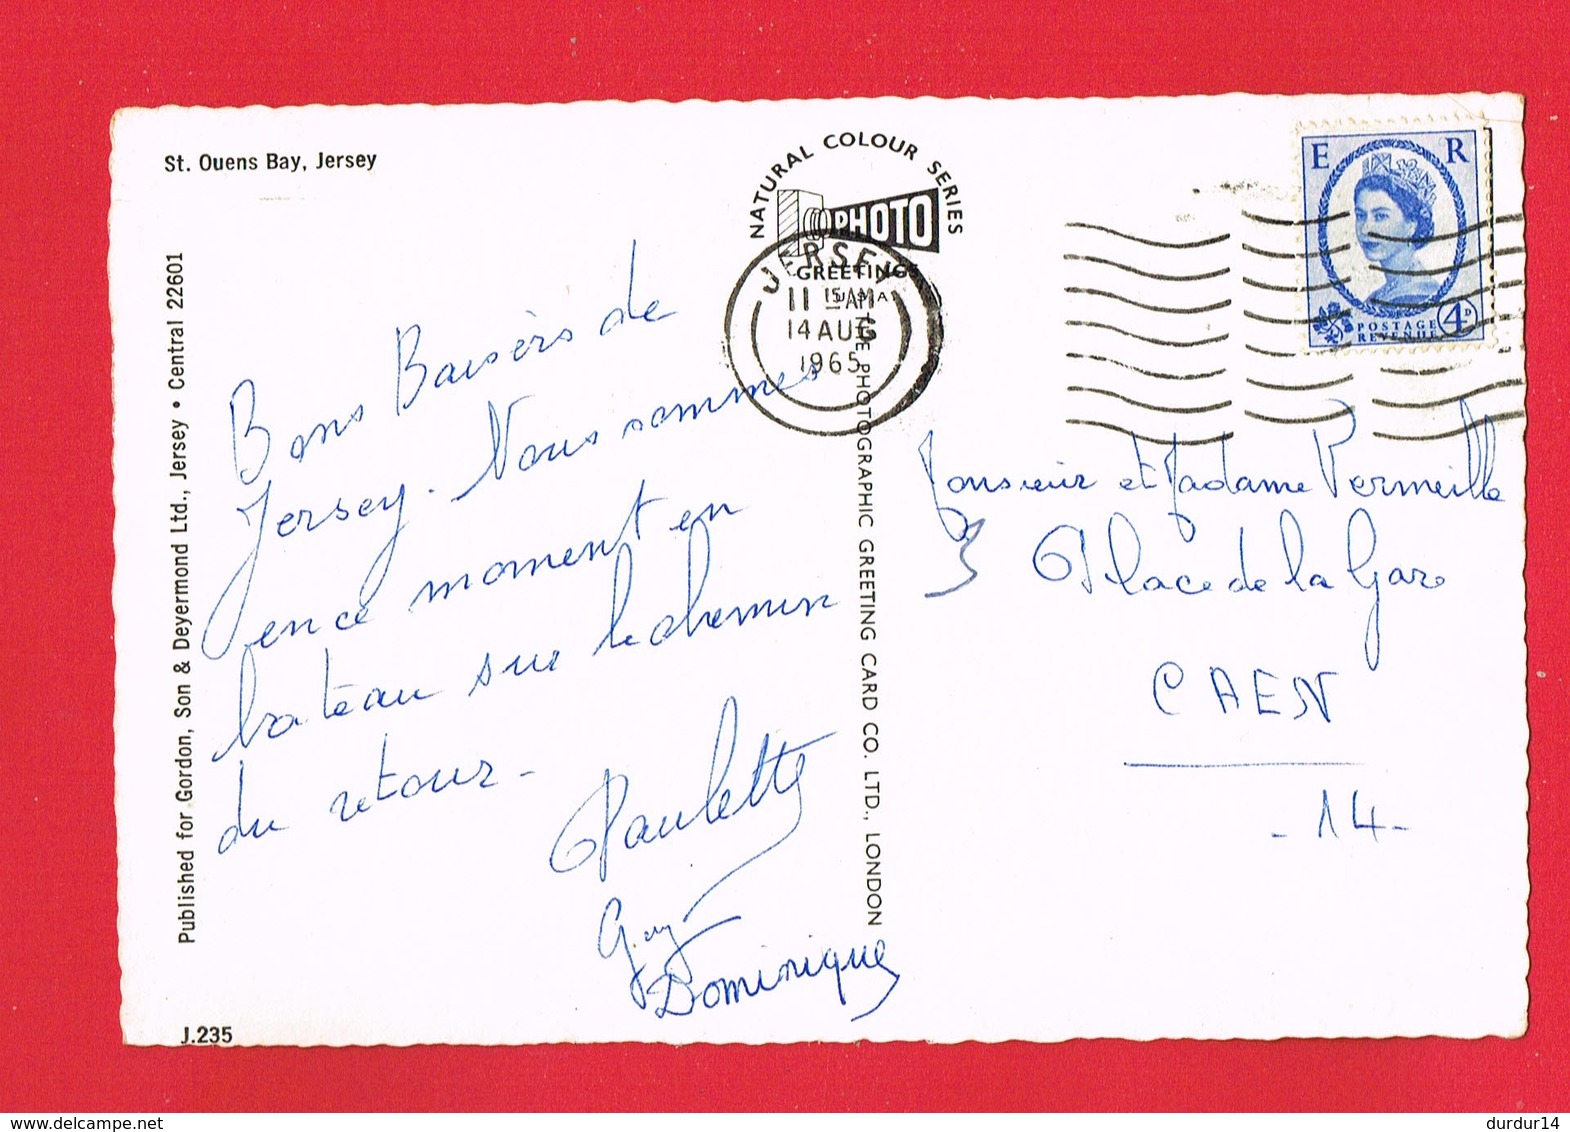 St. Ouens Bay, Jersey
Published for Gordon, Son & Deyermond Ltd., Jersey • Central 22601
J.235
Bons Baisers de
Jersey. Nous sommes
en ce moment en
bateau sur le chemin
du retour -
Paulette
Guy
Dominique
NATURAL COLOUR SERIES
PHOTO
GREETINGS
THE PHOTOGRAPHIC GREETING CARD CO. LTD., LONDON
JERSEY
11 15 AM
14 AUG
1965
E R
POSTAGE
REVENUE
4D
Monsieur et Madame Vermeille
3 Place de la Gare
CAEN
- 14 -
www.delcampe.net
durdur14